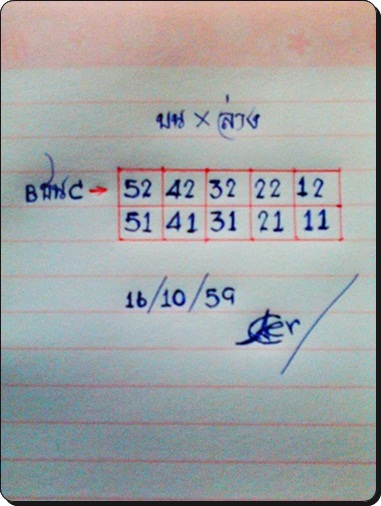 บน × ล่าง
52 42 32 22 12
Bมั่นC → 51 41 31 21 11
16/10/59